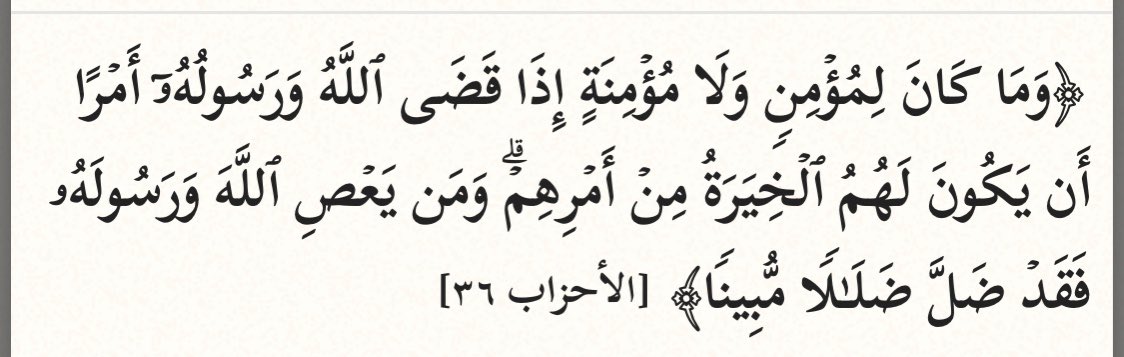 ﴿وَمَا كَانَ لِمُؤۡمِنࣲ وَلَا مُؤۡمِنَةٍ إِذَا قَضَى ٱللَّهُ وَرَسُولُهُۥۤ أَمۡرًا
أَن یَكُونَ لَهُمُ ٱلۡخِیَرَةُ مِنۡ أَمۡرِهِمۡۗ وَمَن یَعۡصِ ٱللَّهَ وَرَسُولَهُۥ
فَقَدۡ ضَلَّ ضَلَـٰلࣰا مُّبِینࣰا﴾ [الأحزاب ٣٦]